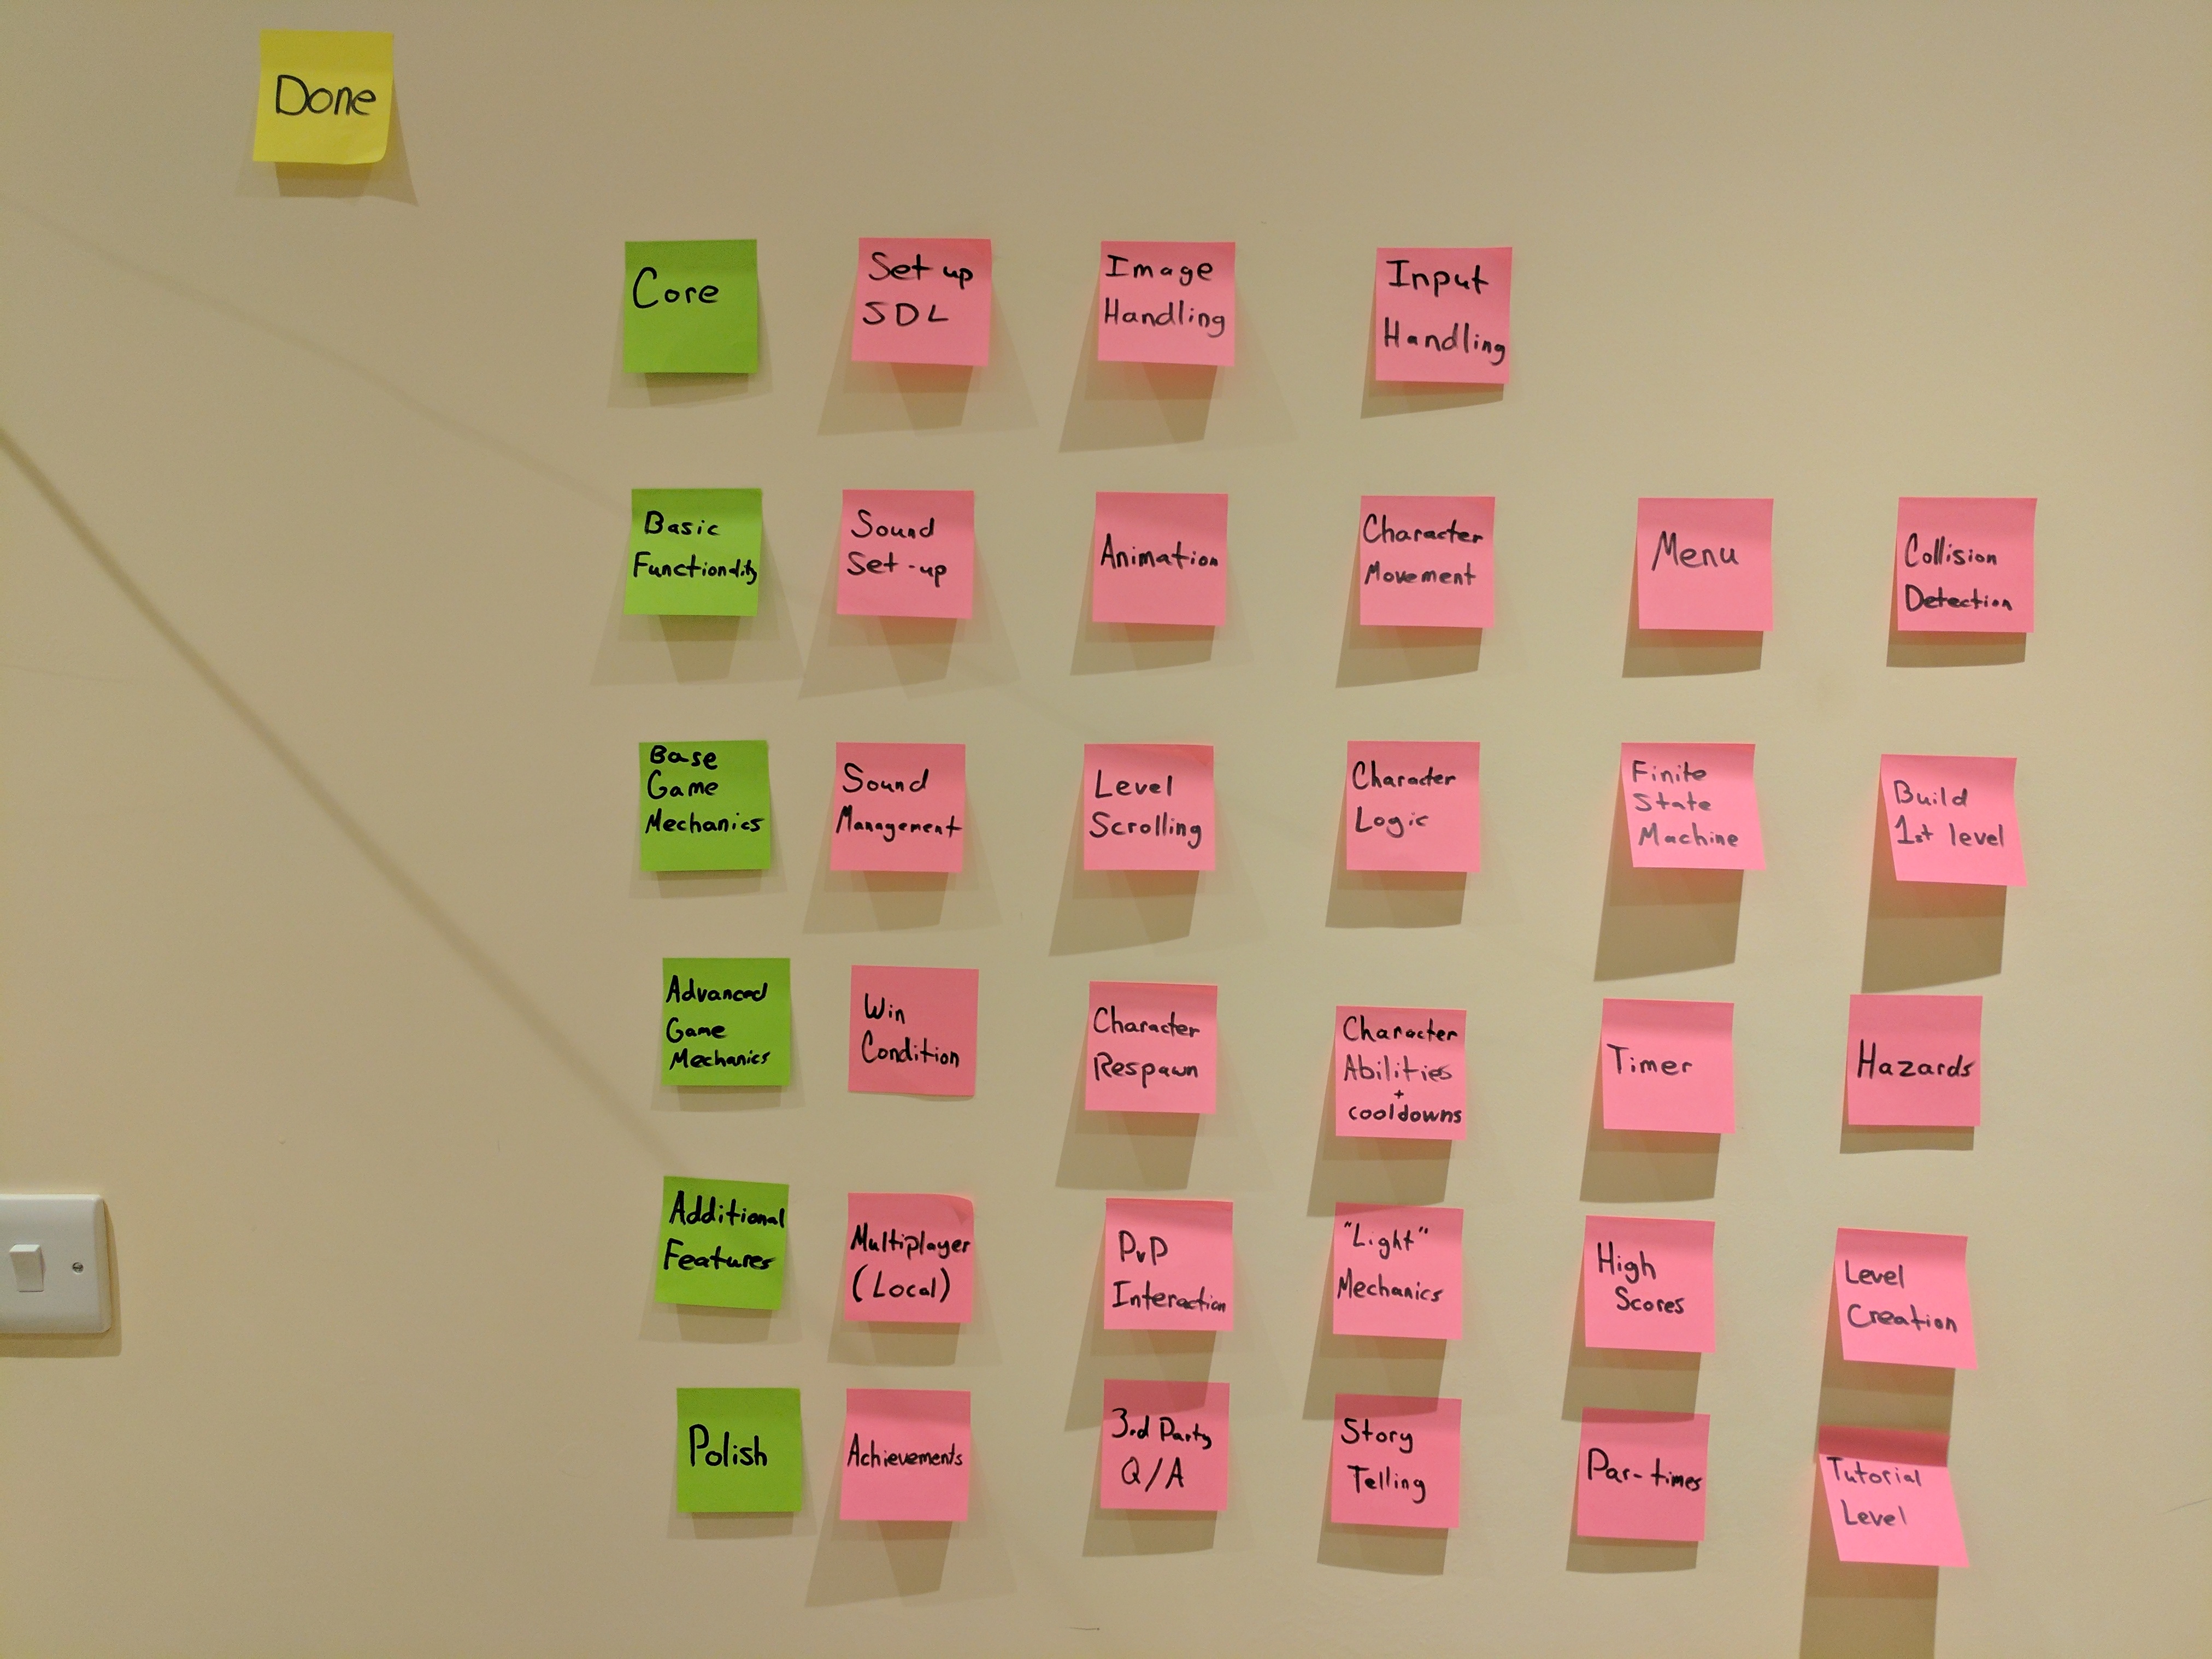 Done
Core
Set up
SDL
Image
Handling
Input
Handling
Basic
Functionality
Sound
Set-up
Animation
Character
Movement
Menu
Collision
Detection
Base
Game
Mechanics
Sound
Management
Level
Scrolling
Character
Logic
Finite
State
Machine
Build
1st level
Advanced
Game
Mechanics
Win
Condition
Character
Respawn
Character
Abilities
+
cooldowns
Timer
Hazards
Additional
Features
Multiplayer
(Local)
PvP
Interaction
"Light"
Mechanics
High
Scores
Level
Creation
Polish
Achievements
3rd Party
Q/A
Story
Telling
Par-times
Tutorial
Level